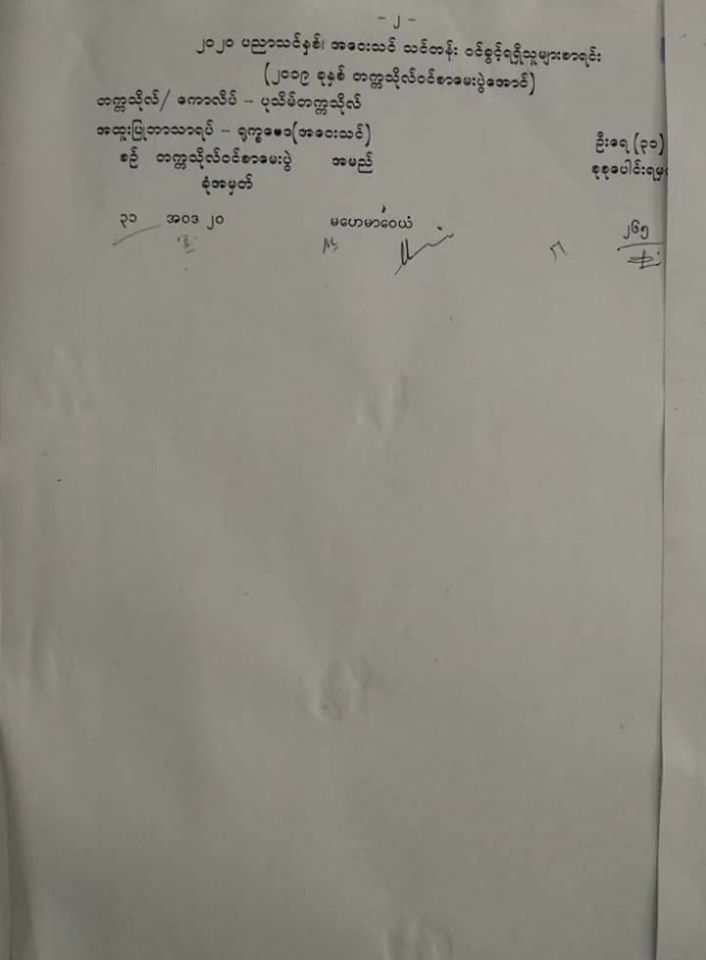 - ၂ -
၂၀၂၀ ပညာသင်နှစ်၊ အဝေးသင် သင်တန်း ဝင်ခွင့်ရရှိသူများစာရင်း
(၂၀၁၉ ခုနှစ် တက္ကသိုလ်ဝင်စာမေးပွဲအောင်)
တက္ကသိုလ်/ ကောလိပ် - ပုသိမ်တက္ကသိုလ်
အထူးပြုဘာသာရပ် - ရုက္ခဗေဒ(အဝေးသင်) ဦးရေ (၃၁)
စဉ် တက္ကသိုလ်ဝင်စာမေးပွဲ အမည် စုစုပေါင်းရမှ
ခုံအမှတ်
၃၁ အဝဒ ၂၀ မဟေမာဝေယံ ၂၆၅